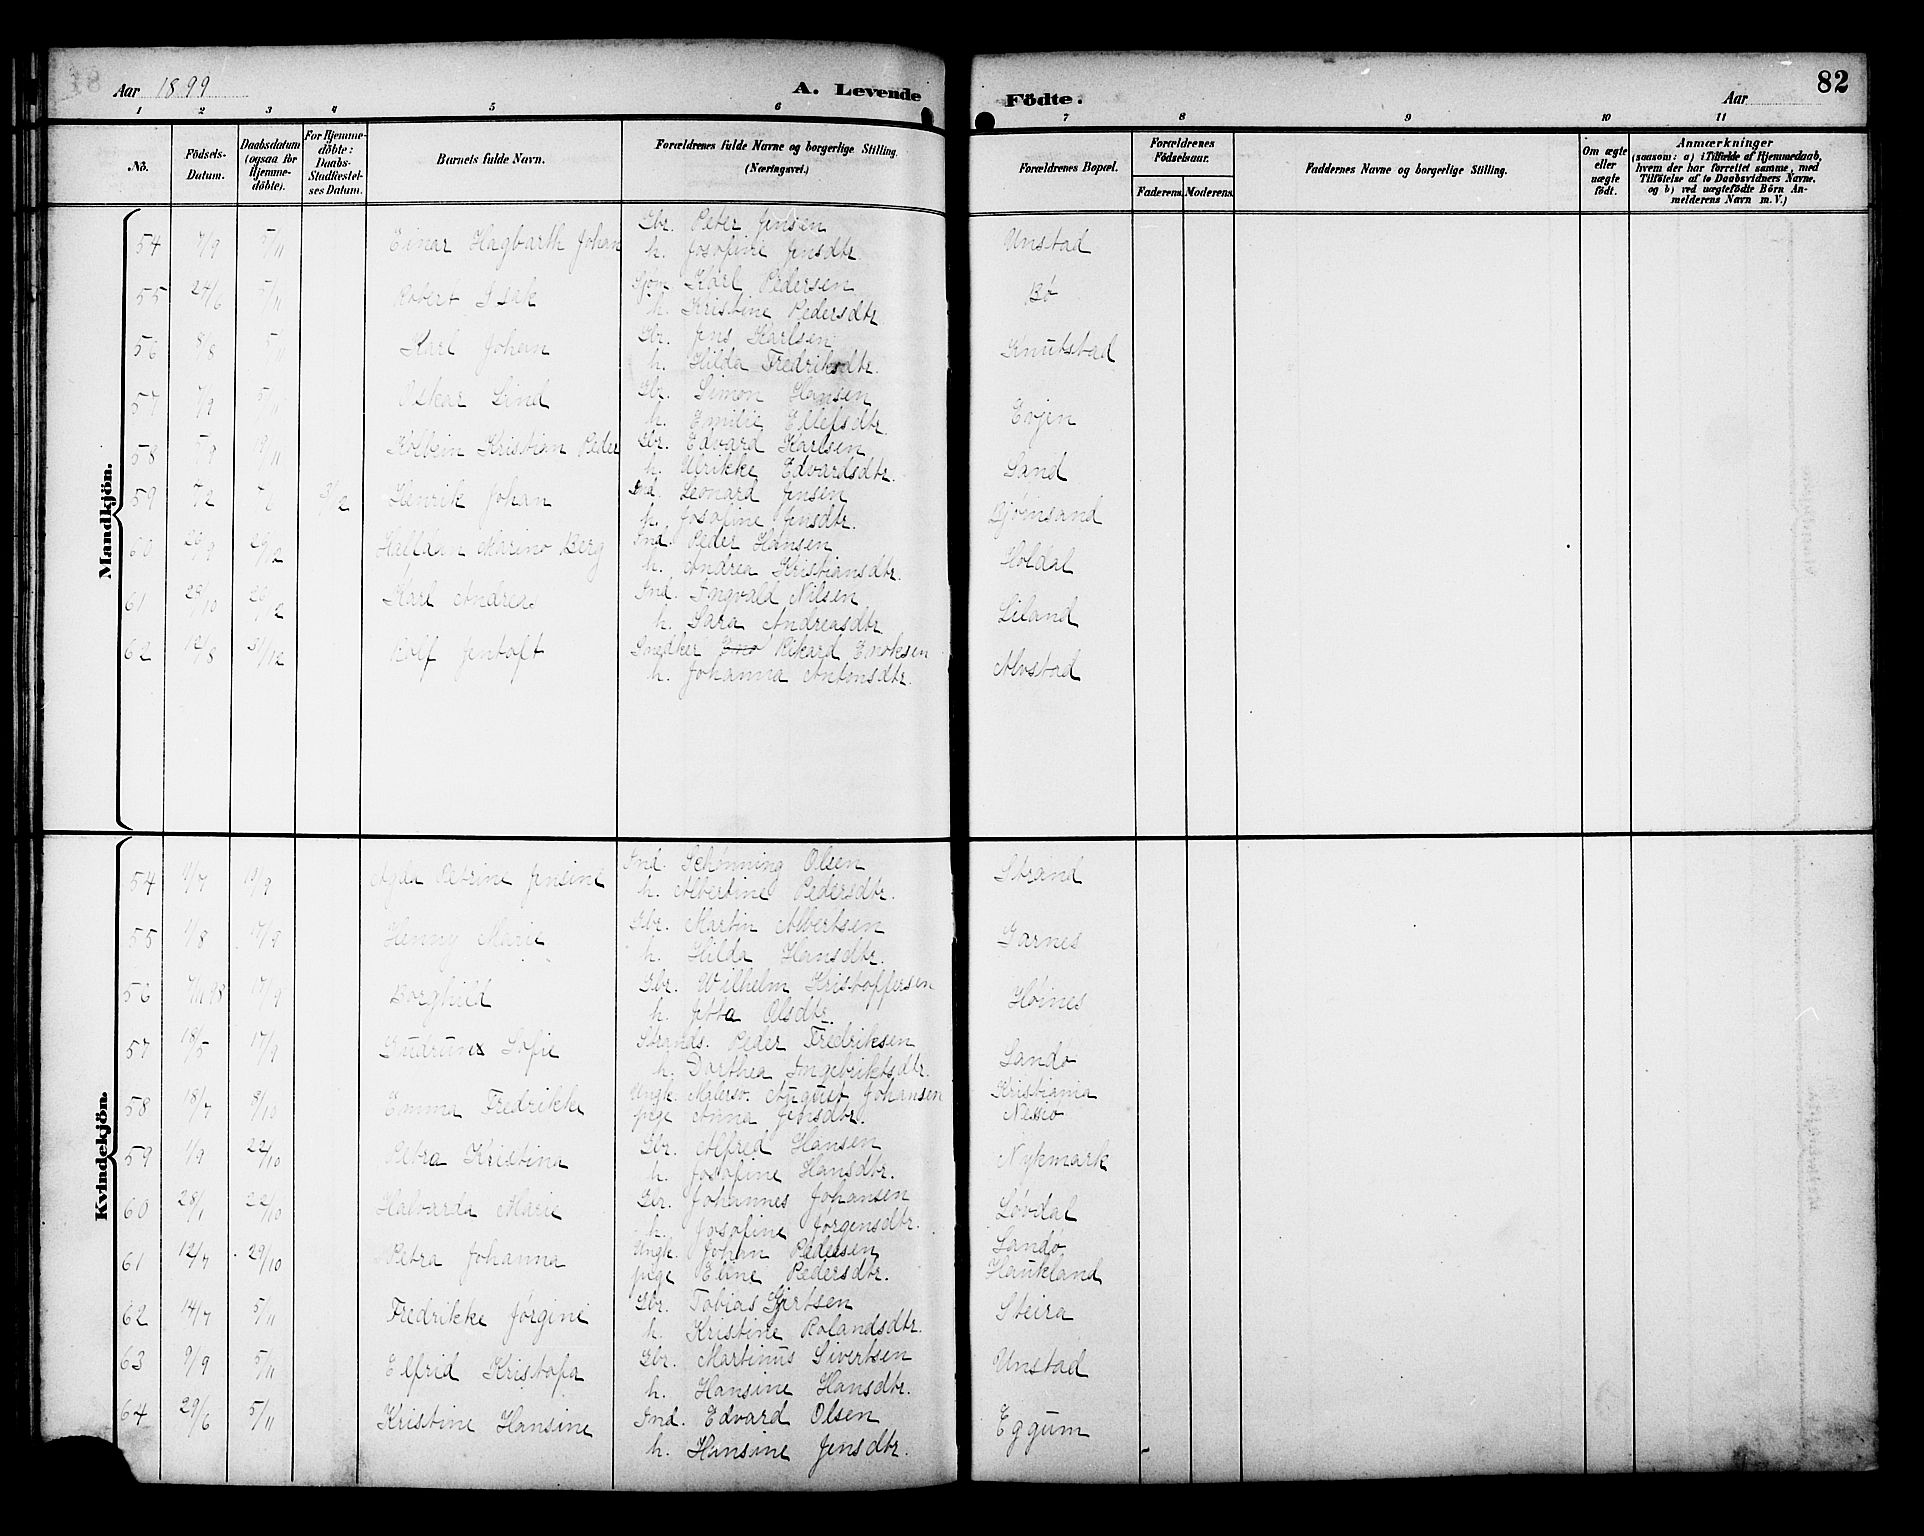 Aar 1899
A. Levende
Födte.
Aar
82
1 2 3 4 5 6 7 8 9 10 11
No.
Födsels-Datum.
Daabsdatum (ogsaa for Hjemme-döbte).
For Hjemme-döbte: Daabs-Stadfæstel-ses Datum.
Barnets fulde Navn.
Forældrenes fulde Navne og borgerlige Stilling. (Næringsvei.)
Forældrenes Bopæl.
Forældrenes Födselsaar.
Faderens. Moderens.
Faddernes Navne og borgerlige Stilling.
Om ægte eller uægte födt.
Anmærkninger
(saasom: a) i Tilfælde af Hjemmedaab,
hvem der har forrettet samme, med
Tilföielse af to Daabsvidners Navne,
og b) ved uægtefödte Börn An-
melderens Navn m. V.)
Mandkjön.
54 7/9 5/11 Einar Hagbarth Johan Gbr. Peter Jensen Unstad
h. Josofine Jensdtr.
55 24/6 5/11 Robert Isak Sjöm. Karl Pedersen Bö
h. Kristine Pedersdtr.
56 8/8 5/11 Karl Johan Gbr. Jens Karlsen Knutstad
h. Hilda Fredriksdtr.
57 7/9 5/11 Oskar Lind Gbr. Simon Hansen Evjen
h. Emilie Ellefsdtr.
58 5/9 19/11 Kolbein Kristian Peder Gbr. Edvard Karlsen Sand
h. Ulrikke Edvardsdtr.
59 7/2 3/12 Henrik Johan Ind. Leonard Jensen Bjørnsand
h. Josofine Jensdtr.
60 26/9 26/12 Halfdan Marino Berg Ind. Peder Hansen Holdal
h. Andrea Kristiansdtr.
61 28/10 26/12 Karl Andreas Ind. Ingvald Nilsen Liland
h. Sara Andreasdtr.
62 12/8 31/12 Rolf Jentoft Snedker Rikard Enoksen Alvstad
h. Johanna Antonsdtr.
Kvindekjön.
54 4/7 Agda Petrine Jensine Ind. Schønning Olsen Strand
h. Albertine Pedersdtr.
55 1/8 17/9 Henny Marie Gbr. Martin Albertsen Garnes
h. Hilda Hansdtr.
56 17/9 Borghild Gbr. Wilhelm Kristoffersen Høines
h. Jetta Olsdtr.
57 18/5 17/9 Gudrun Sofie Strands. Peder Fredriksen Sandø
h. Dorthea Ingebriktsdtr.
58 18/7 8/10 Emma Fredrikke Ungk. Malersv. August Johansen Kristiania
pige Anna Jensdtr. Nessio
59 1/9 22/10 Petra Kristina Gbr. Alfred Hansen Nykmark
h. Josofine Hansdtr.
60 28/1 22/10 Halvarda Marie Gbr. Johannes Johansen Løvdal
h. Josofine Jørgensdtr.
61 12/7 29/10 Petra Johanna Ungk. Johan Pedersen Sandø
pige Eline Pedersdtr. Haukland
62 14/7 5/11 Fredrikke Jørgine Gbr. Tobias Gjertsen Steira
h. Kristine Rolandsdtr.
63 9/9 5/11 Elfrid Kristofa Gbr. Martinus Sivertsen Unstad
h. Hansine Hansdtr.
64 29/6 5/11 Kristine Hansine Ind. Edvard Olsen Eggum
h. Hansine Jensdtr.